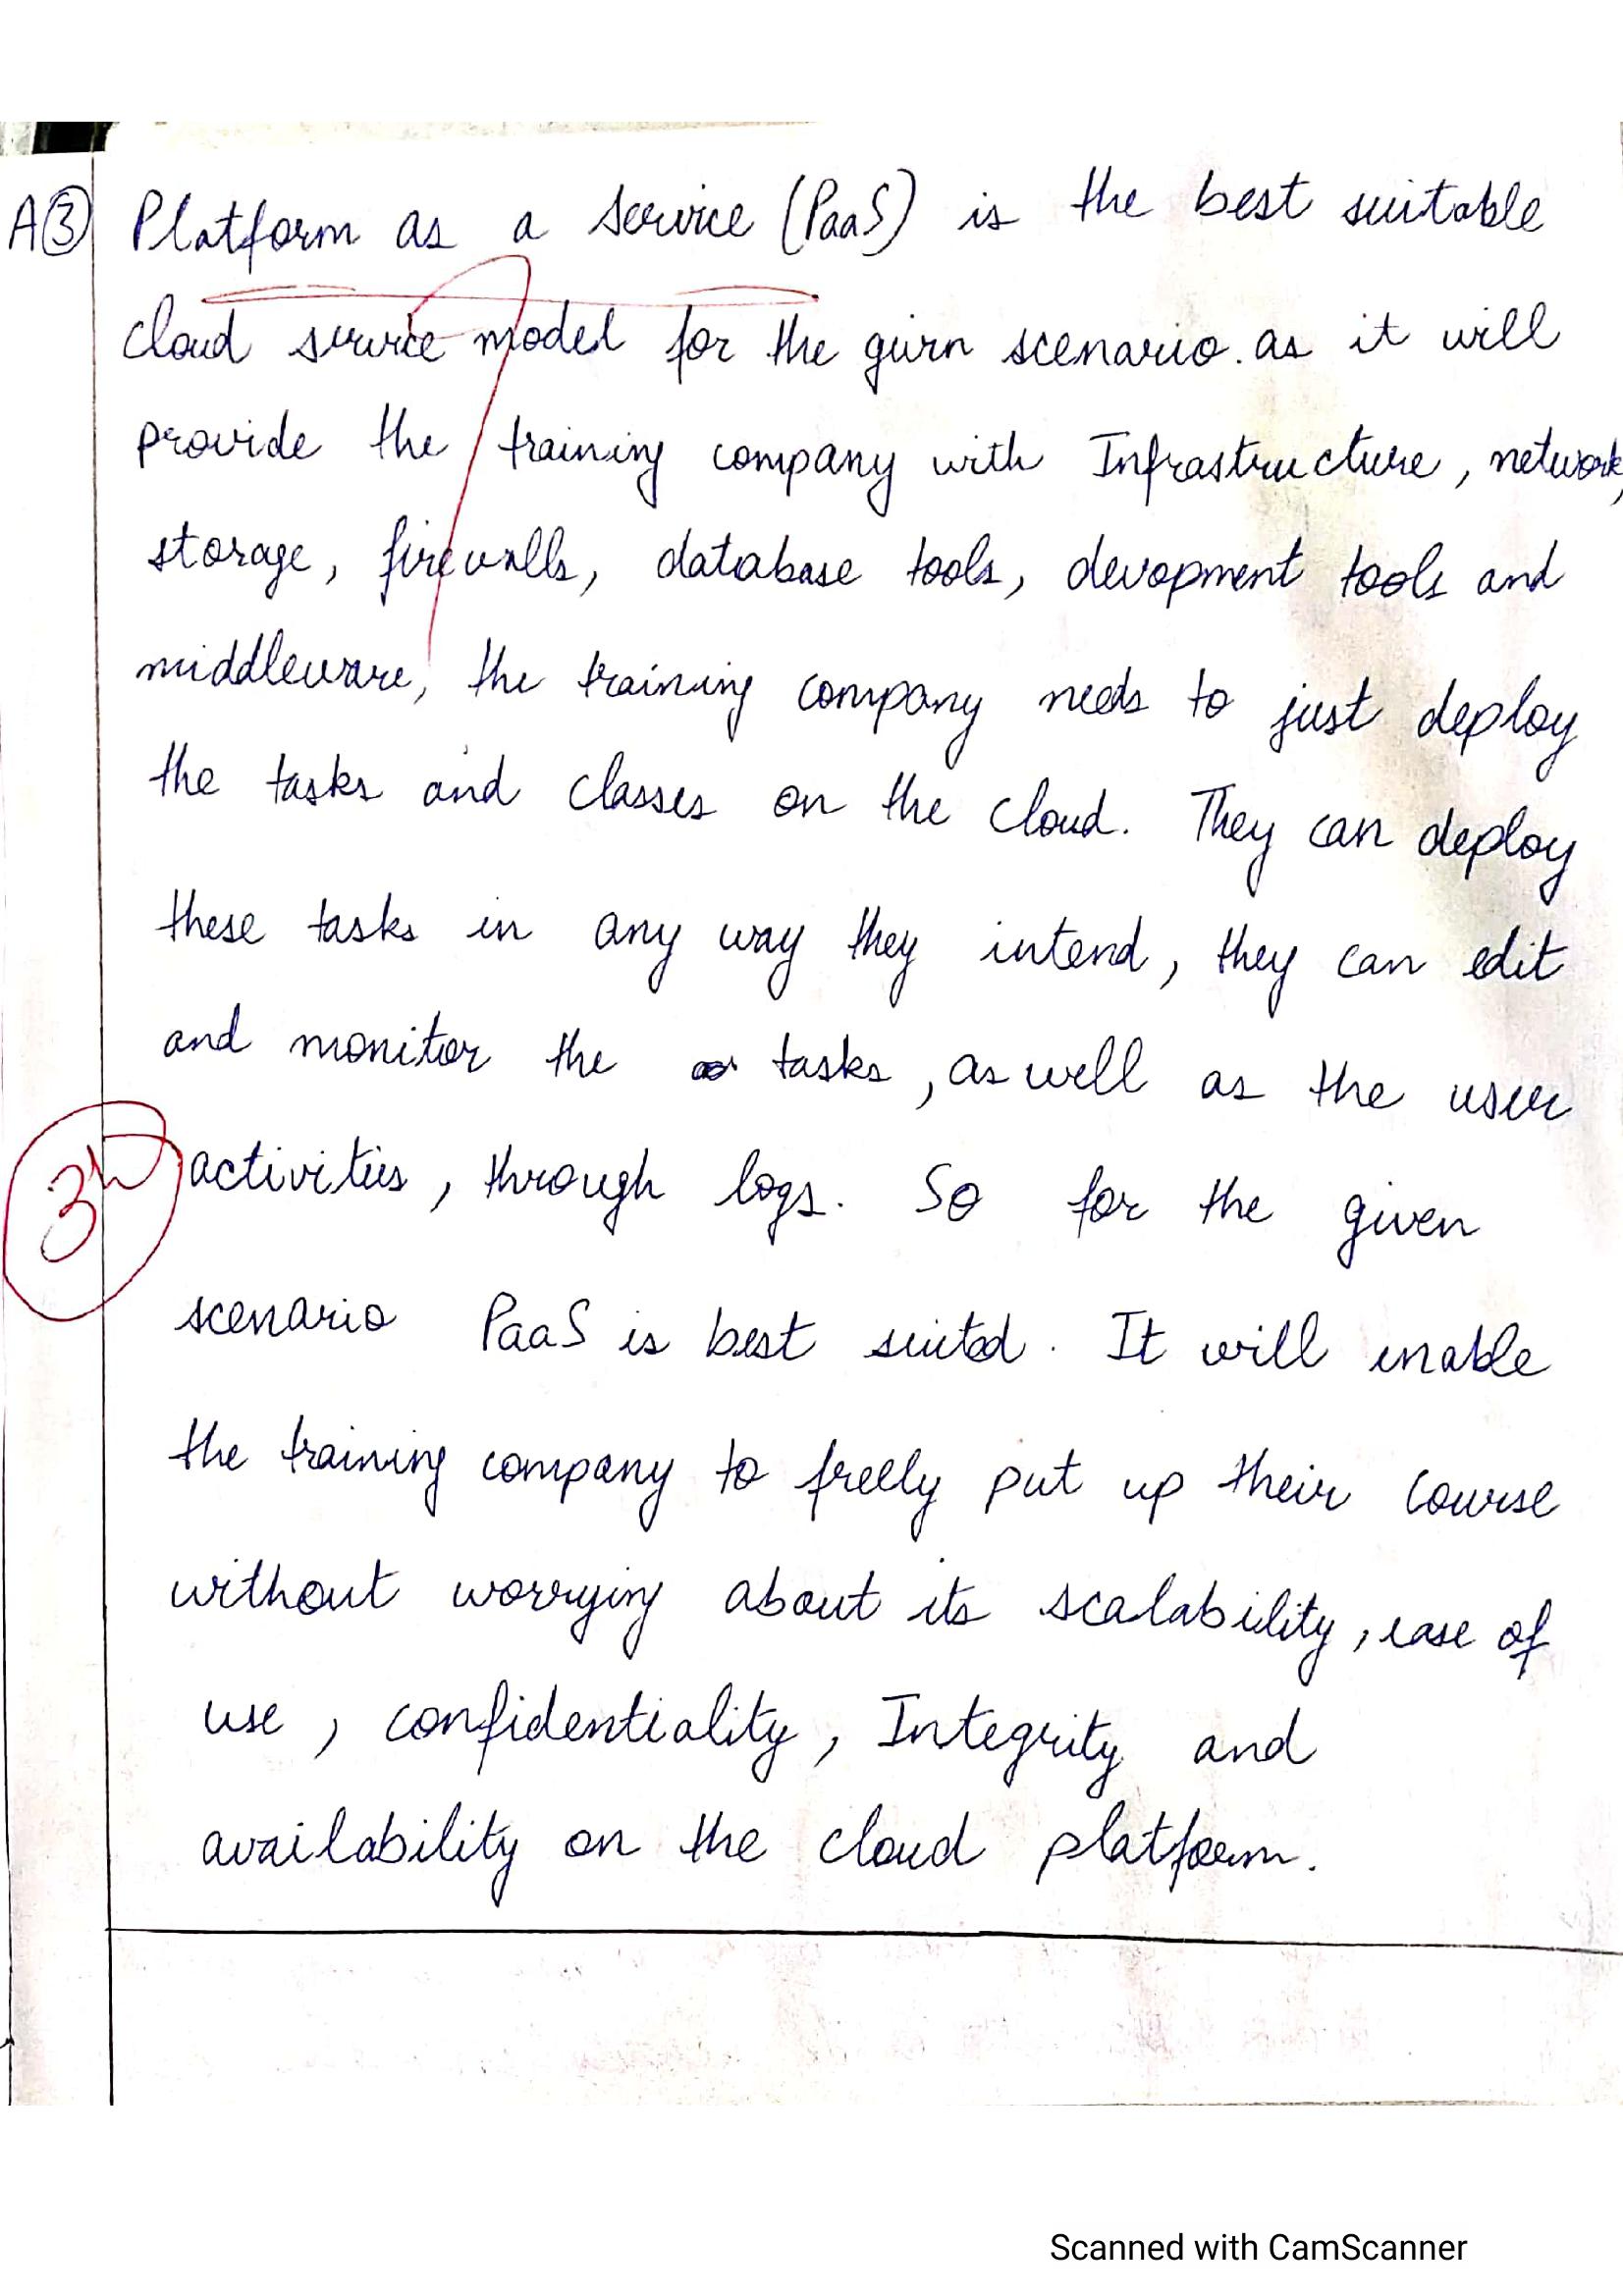 A③ Platform as a service (PaaS) is the best suitable
cloud service model for the givrn scenario. as it will
provide the training company with Infrastructure, network,
storage, firewalls, database tools, devopment tools and
middleware, the training company needs to just deploy
the tasks and classes on the cloud. They can deploy
these tasks in any way they intend, they can edit
and monitor the tasks, as well as the user
activities, through logs. So for the given
scenario PaaS is best suited. It will enable
the training company to freely put up their course
without worrying about its scalability, ease of
use, confidentiality, Integrity and
availability on the cloud platform.
Scanned with CamScanner